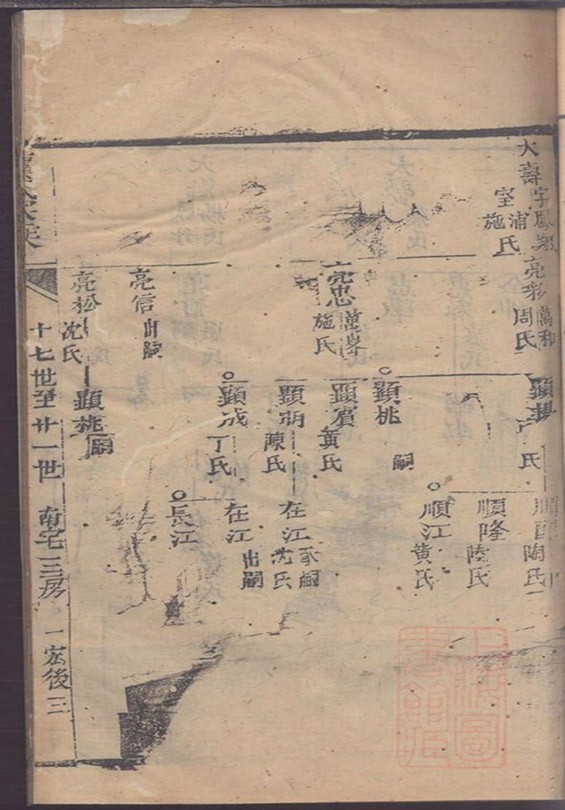 大壽
字鳳翔
室浦氏
施氏
亮彩
萬和
周氏
顯揚
氏
陶氏
順隆
陸氏
順江
黃氏
亮忠
施氏
顯桃
嗣
顯賓
黃氏
顯明
陳氏
在江
承嗣
沈氏
顯成
丁氏
在江
出嗣
長江
亮信
出嗣
亮松
沈氏
顯桃
嗣
十七世至廿一世
南宅三房
一宏後
三